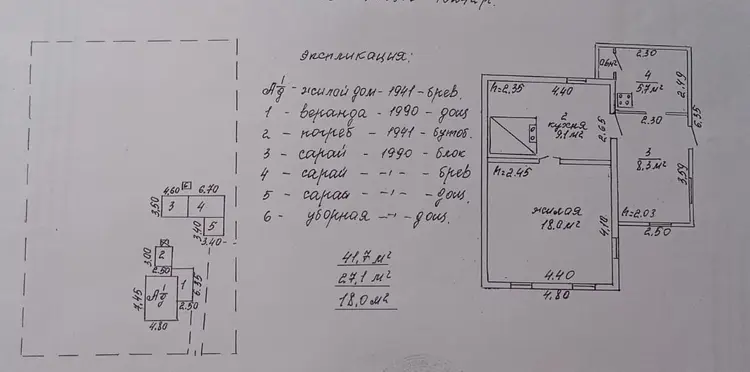 Экспликация:
А1/д - жилой дом - 1941 - брев.
1 - веранда - 1990 - дощ
2 - погреб - 1941 - бутоб.
3 - сарай - 1990 - блок
4 - сарай - -"- - брев
5 - сарай - -"- - дощ.
6 - уборная - -"- - дощ.
41,7 м²
27,1 м²
18,0 м²
4,60
6.70
3,50
3
4
5
3,40
3.40
2
3,00
2.50
А1/д
1
6.35
7,45
2.50
4.80
h=2.35
4.40
2
кухня
9,1 м²
2.65
h=2.45
жилая
18.0 м²
4,10
4.40
4.80
2.30
4
5,7 м²
2.49
2.30
6,35
3
8,3 м²
3,59
h=2.03
2.50